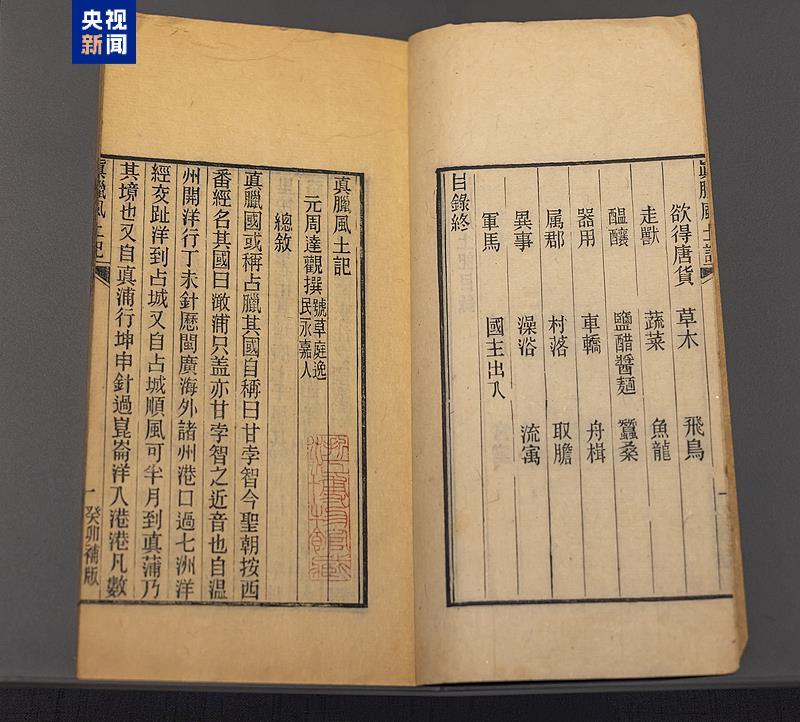 央视
新闻
眞臘風土記
欲得唐貨 草木 飛鳥
走獸 蔬菜 魚龍
醖釀 鹽醋醬麵 蠶桑
器用 車轎 舟楫
属郡 村落 取膽
異事 澡浴 流寓
軍馬 國主出入
目錄終
眞臘風土記
元周達觀撰 號草庭逸民永嘉人
總敘
眞臘國或稱占臘其國自稱曰甘孛智今聖朝按西
番經名其國曰澉浦只盖亦甘孛智之近音也自溫
州開洋行丁未針歷閩廣海外諸州港口過七洲洋
經交趾洋到占城又自占城順風可半月到眞蒲乃
其境也又自眞蒲行坤申針過崑崙洋入港港凡數
眞臘風土記 一 癸卯補版